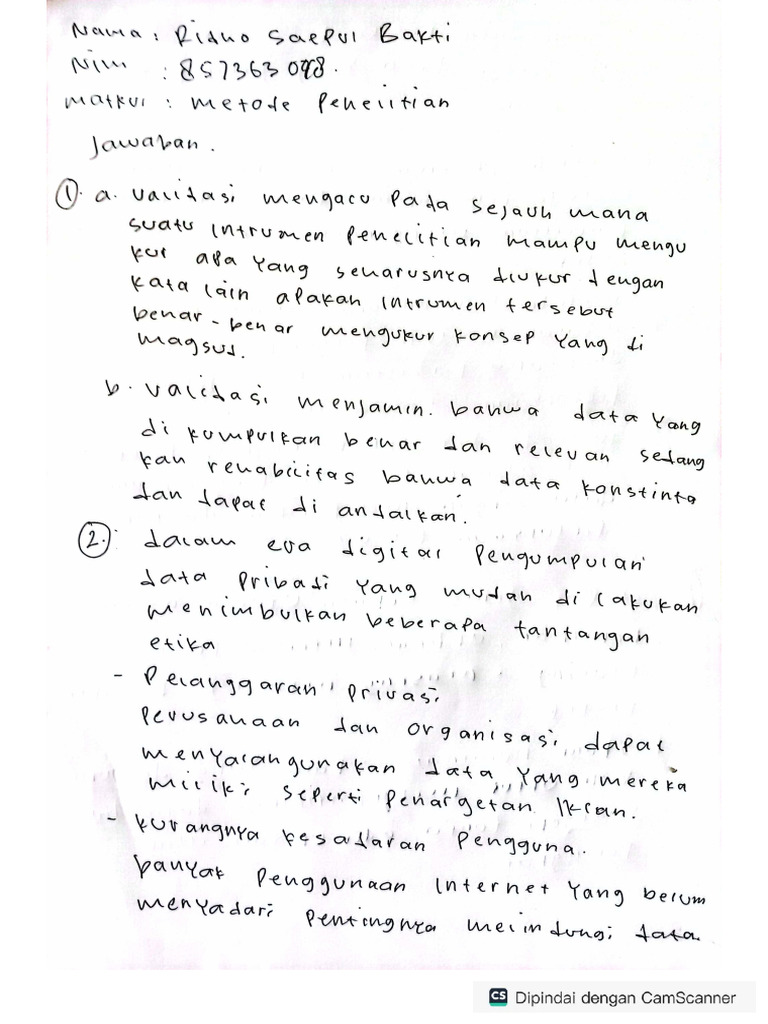 Nama : Ridho Saepul Bakti
Nim : 857363098.
matkul : metode Penelitian
Jawaban.
1. a. validasi mengacu pada sejauh mana
suatu intrumen penelitian mampu mengu
kur apa yang seharusnya diukur dengan
kata lain apakah intrumen tersebut
benar-benar mengukur konsep yang di
magsud.
b. validasi menjamin. bahwa data yang
di kumpulkan benar dan relevan sedang
kan rehabilitas bahwa data konstinta
dan dapat di andalkan.
2. dalam era digital pengumpulan
data pribadi yang mudah di lakukan
menimbulkan beberapa tantangan
etika
- Pelanggaran privasi
perusahaan dan organisasi dapat
menyalahgunakan data yang mereka
miliki seperti penargetan iklan.
- kurangnya kesadaran pengguna.
banyak penggunaan internet yang belum
menyadari pentingnya melindungi data
CS Dipindai dengan CamScanner